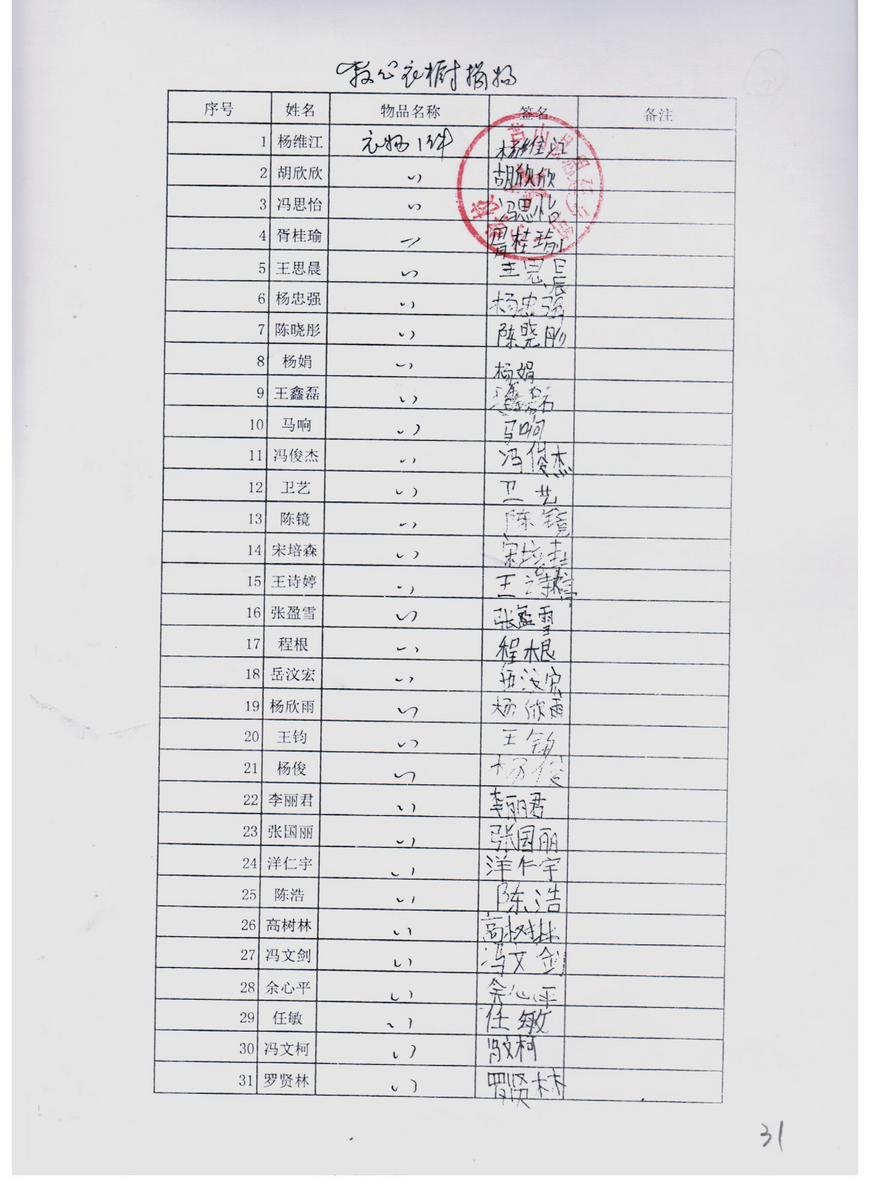 爱心衣橱捐物
序号 姓名 物品名称 签名 备注
1 杨维江 衣物1件 杨维江
2 胡欣欣 〃 胡欣欣
3 冯思怡 〃 冯思怡
4 胥桂瑜 〃 胥桂瑜
5 王思晨 〃 王思晨
6 杨忠强 〃 杨忠强
7 陈晓彤 〃 陈晓彤
8 杨娟 〃 杨娟
9 王鑫磊 〃
10 马响 〃 马响
11 冯俊杰 〃 冯俊杰
12 卫艺 〃 卫艺
13 陈镜 〃 陈镜
14 宋培森 〃 宋培
15 王诗婷 〃 王诗婷
16 张盈雪 〃 张盈雪
17 程根 〃 程根
18 岳汶宏 〃 岳汶宏
19 杨欣雨 〃 杨欣雨
20 王钧 〃 王钧
21 杨俊 〃 杨俊
22 李丽君 〃 李丽君
23 张国丽 〃 张国丽
24 洋仁宇 〃 洋仁宇
25 陈浩 〃 陈浩
26 高树林 〃 高树林
27 冯文剑 〃 冯文剑
28 余心平 〃 余心平
29 任敏 〃 任敏
30 冯文柯 〃 冯文柯
31 罗贤林 〃 罗贤林
31